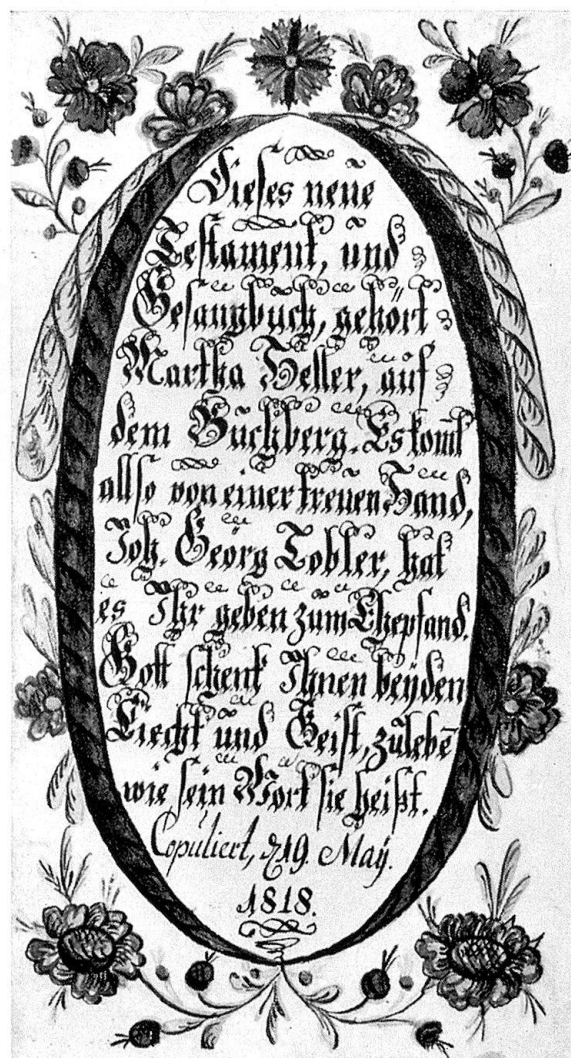 Dieses neüe
Testament, ünd
Gesangbüch, gehört
Martha Heller, aüf
dem Büchberg. Es kom̅t
allso von einer treüen Hand,
Joh. Geörg Tobler, hat
es Ihr geben züm Ehepfand.
Gott schenk Ihnen beyden
Liecht ünd Geist, zülebe̅
wie sein Wort sie heißt.
Copüliert, d 19. Maÿ.
1818.